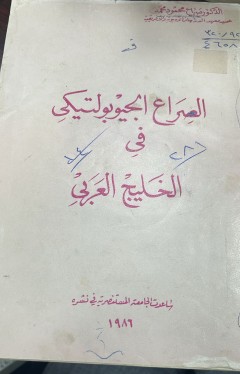 الدكتور سراج محمود محمد
٣٢٠/٩٢
٤٦٥٨
الصراع الجيوبولتيكي
في
٢٨٦
الخليج العربي
ساعدت الجامعة المستنصرية في نشره
١٩٨٦